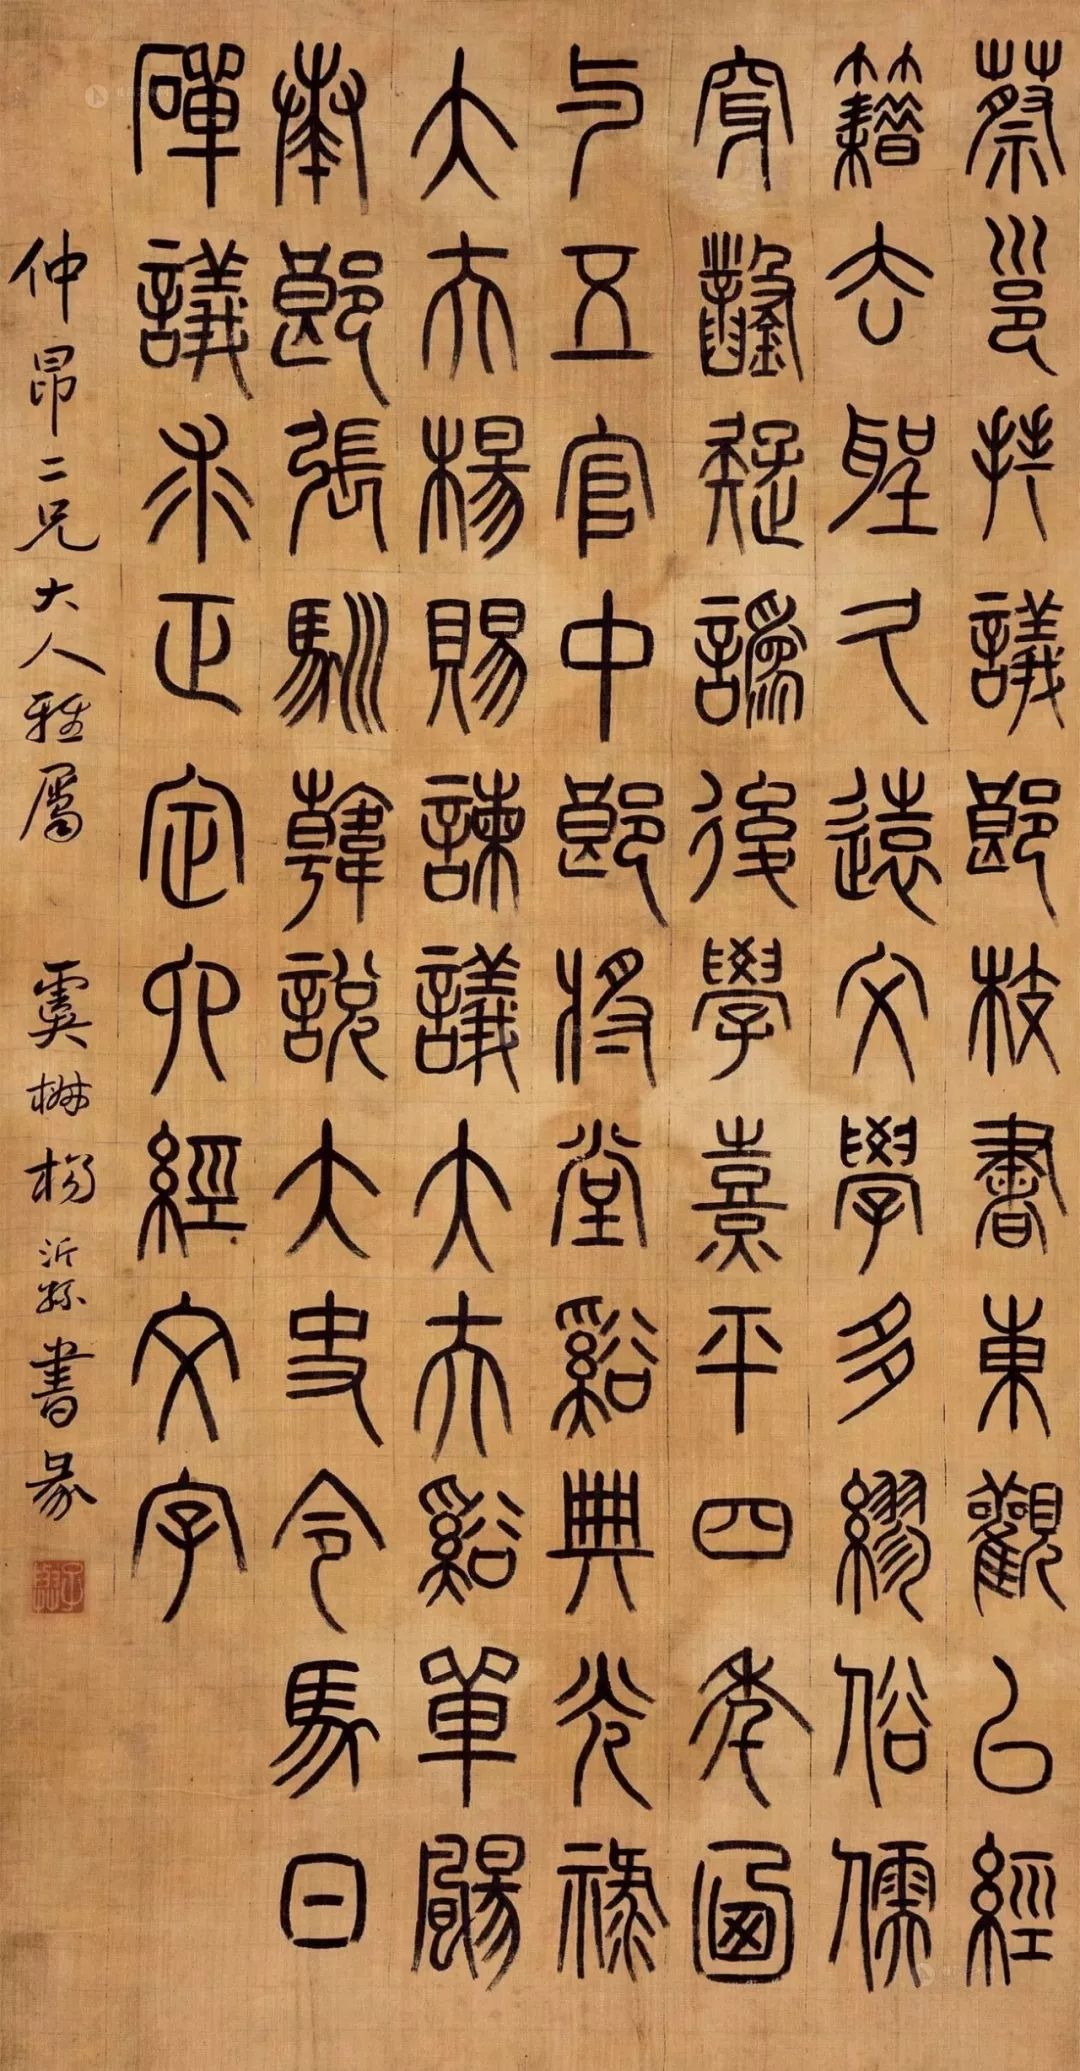 蔡邕拜議郎校書東觀以經
籍去聖久遠文學多繆俗儒
穿鑿疑譌後學熹平四年
与五官中郎將堂谿典光祿
大夫楊賜諫議大夫谿單颺
郎張馴韓說大史令馬日
磾議求正定六經文字
仲昂二兄大人雅屬 虞楊沂孫書篆